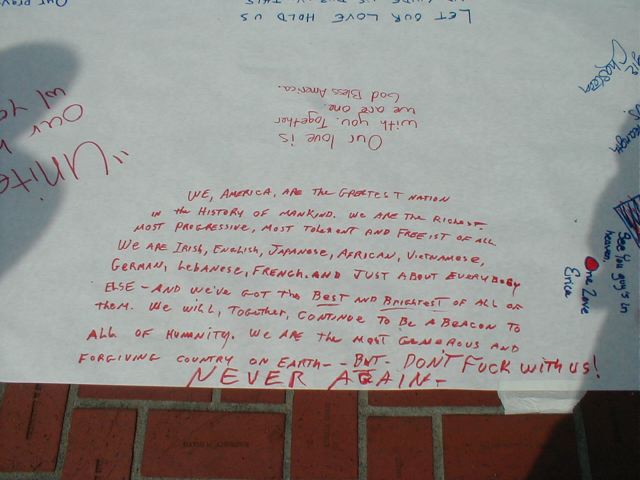 LET OUR LOVE HOLD US
Our love is
with you. Together
we are one.
God Bless America.
"Unite
Our
w/ yo
Chasteen
See You guy's in
heaven.
One Love
Erica
WE, AMERICA, ARE the GREATEST NATION
in the HISTORY OF MANKIND. WE ARE the RICHEST
MOST PROGRESSIVE, MOST TOLERENT AND FREEIST OF ALL
We ARE IRISH, ENGLISH, JAPANESE, AFRICAN, VIETNAMESE,
GERMAN, LEBANESE, FRENCH AND JUST ABOUT EVERYBODY
ELSE - AND WE'VE GOT the BEST AND BRIGHTEST OF ALL OF
them. WE WILL, TOGETHER, CONTINUE to BE A BEACON TO
ALL OF HUMANITY. WE ARE the MOST GENEROUS AND
FORGIVING COUNTRY ON EARTH -- BUT - DON'T FUCK WITH US!
NEVER AGAIN -